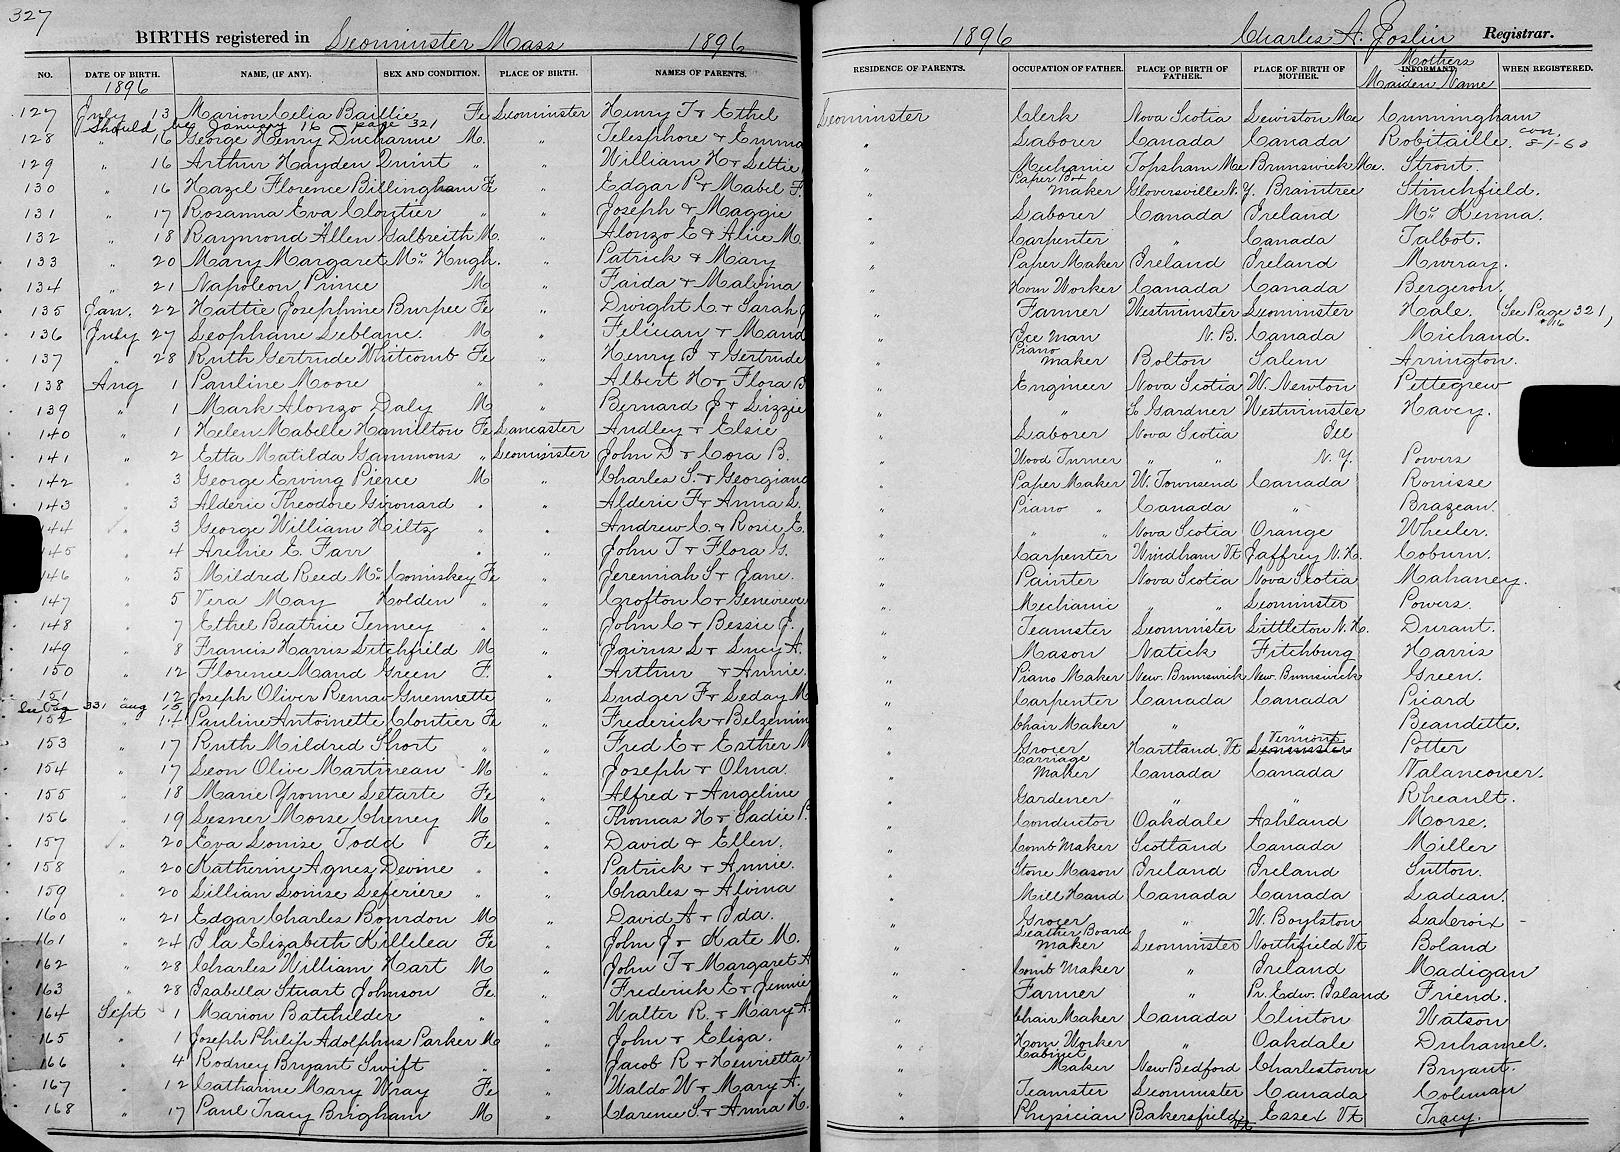 327
BIRTHS registered in Leominster Mass 1896
1896 Charles A. Joslin Registrar.
NO. DATE OF BIRTH. NAME, (IF ANY). SEX AND CONDITION. PLACE OF BIRTH. NAMES OF PARENTS. RESIDENCE OF PARENTS. OCCUPATION OF FATHER. PLACE OF BIRTH OF FATHER. PLACE OF BIRTH OF MOTHER. INFORMANT. Mothers Maiden Name WHEN REGISTERED.
1896
127 July 13 Marion Celia Baillie Fe Leominster Henry T & Ethel Leominster Clerk Nova Scotia Lewiston Me Cunningham
Should be January 16 page 321
128 " 16 George Henry Ducharme M. " Telesphore & Emma " Laborer Canada Canada Robitaille. con. 8-1-60
129 " 16 Arthur Hayden Quint " " William H & Lettie " Mechanic Topsham Me Brunswick Me. Strout.
130 " 16 Hazel Florence Billingham Fe " Edgar P & Mabel F. " Paper Box Maker Gloversville N.Y. Braintree Stinchfield.
131 " 17 Rosanna Eva Cloutier " " Joseph & Maggie " Laborer Canada Ireland McKenna.
132 " 18 Raymond Allen Galbreith M. " Alonzo E & Alice M. " Carpenter " Canada Talbot.
133 " 20 Mary Margaret McHugh. " Patrick & Mary " Paper Maker Ireland Ireland Murray.
134 " 21 Napoleon Prince M " Faida & Malvina " Horn Worker Canada Canada Bergeron.
135 Jan. 22 Hattie Josephine Burpee Fe " Dwight C & Sarah J " Farmer Westminster Leominster Hale. (See Page 321, #16
136 July 27 Leophane Leblanc. M " Felician & Maud " Ice Man N. B. Canada Michaud.
137 " 28 Ruth Gertrude Whitcomb Fe " Henry B & Gertrude " Piano Maker Bolton Salem Arrington.
138 Aug 1 Pauline Moore " " Albert H & Flora B " Engineer Nova Scotia W. Newton Pettegrew
139 " 1 Mark Alonzo Daly M " Bernard J & Lizzie " " So Gardner Westminster Havey.
140 " 1 Helen Mabelle Hamilton Fe Lancaster Audley & Elsie " Laborer Nova Scotia Ill
141 " 2 Etta Matilda Gammons " Leominster John D & Cora B. " Wood Turner " " N. Y. Powers
142 " 3 George Erving Pierce M " Charles S. & Georgiana " Paper Maker W. Townsend Canada Rouisse
143 " 3 Alderic Theodore Girouard " " Alderic F & Anna L. " Piano " Canada " Brazeau.
144 " 3 George William Hiltz " " Andrew C. & Rosie E. " " " Nova Scotia Orange Wheeler.
145 " 4 Archie E. Farr " " John T & Flora G. " Carpenter Windham Vt Jaffrey N. H. Coburn.
146 " 5 Mildred Reed McComiskey Fe " Jeremiah S & Jane. " Painter Nova Scotia Nova Scotia Mahaney.
147 " 5 Vera May Holden " " Crofton C & Genevieve " Mechanic " " Leominster Powers.
148 " 7 Ethel Beatrice Tenney " " John C & Bessie J. " Teamster Leominster Littleton N. H. Durant.
149 " 8 Francis Harris Litchfield M " Jairus L & Lucy A. " Mason Natick Fitchburg Harris
150 " 12 Florence Maud Green F. " Arthur & Annie. " Piano Maker New Brunswick New Brunswick Green.
151 " 12 Joseph Oliver Guennette " Ludger F & Leday M " Carpenter Canada Canada Picard
See Pag 331 aug 15
152 " 14 Pauline Antoinette Cloutier Fe " Frederick & " Chair Maker " " Beaudette.
153 " 17 Ruth Mildred Short " " Fred E & Esther M " Grocer Hartland Vt Leominster Vermont Potter
154 " 17 Leon Olive Martineau M " Joseph & Olma. " Carriage Maker Canada Canada Valancouer.
155 " 18 Marie Yvonne Letarte Fe " Alfred & Angeline " Gardener " " Rheault.
156 " 19 Lesner Morse Cheney M " Thomas H & Sadie P. " Conductor Oakdale Ashland Morse.
157 " 20 Eva Louise Todd Fe " David & Ellen. " Comb Maker Scotland Canada Miller
158 " 20 Katherine Agnes Devine " " Patrick & Annie. " Stone Mason Ireland Ireland Sutton.
159 " 20 Lillian Louise Laferiere " " Charles & Alvina " Mill Hand Canada Canada Ladeau.
160 " 21 Edgar Charles Bourdon M " David A & Ida. " Grocer " W. Boylston LaCroix -
161 " 24 Ila Elizabeth Killelea Fe " John J & Kate M. " Leather Board Maker Leominster Northfield Vt Boland
162 " 28 Charles William Hart M " John T & Margaret A " Comb Maker " Ireland Madigan
163 " 28 Isabella Stuart Johnson Fe " Frederick E & Jennie " Farmer " Pr. Edw. Island Friend.
164 Sept 1 Marion Batchelder " " Walter R. & Mary A. " Chair Maker Canada Clinton Watson
165 " 1 Joseph Philip Adolphus Parker M " John & Eliza. " Horn Worker " Oakdale Duhamel.
166 " 4 Rodney Bryant Swift " " Jacob R & Henrietta " Cabinet Maker New Bedford Charlestown Bryant.
167 " 12 Catharine Mary Wray Fe " Waldo W & Mary A. " Teamster Leominster Canada Coleman
168 " 17 Paul Tracy Brigham M " Clarence S & Anna H. " Physician Bakersfield Vt Essex Vt Tracy.